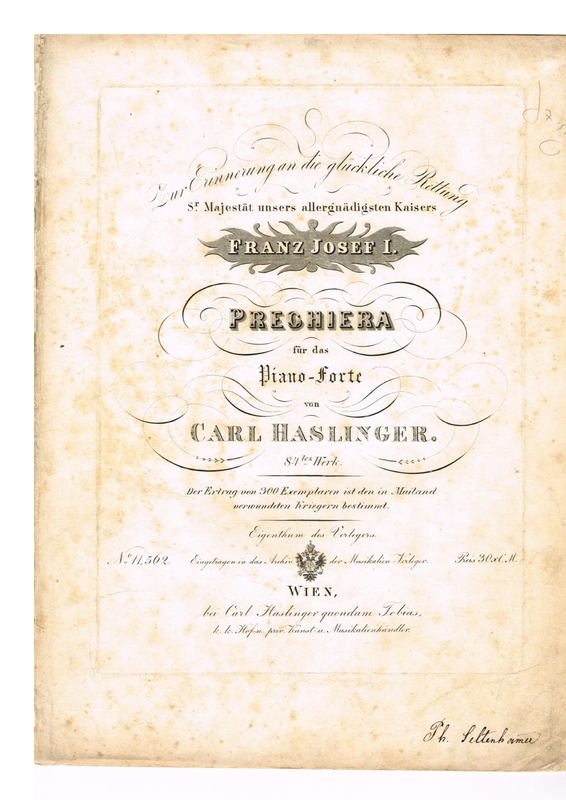 Zur Erinnerung an die glückliche Rettung
Sr. Majestät unsers allergnädigsten Kaisers
FRANZ JOSEF I.
PREGHIERA
für das
Piano-Forte
von
CARL HASLINGER.
84tes Werk.
Der Ertrag von 300 Exemplaren ist den in Mailand
verwundeten Kriegern bestimmt.
Eigenthum des Verlegers.
No. 11,562. Eingetragen in das Archiv der Musikalien-Verleger. Preis 30 x C.M.
WIEN,
bei Carl Haslinger quondam Tobias,
k. k. Hof- u. priv. Kunst- u. Musikalienhändler.
Ph.